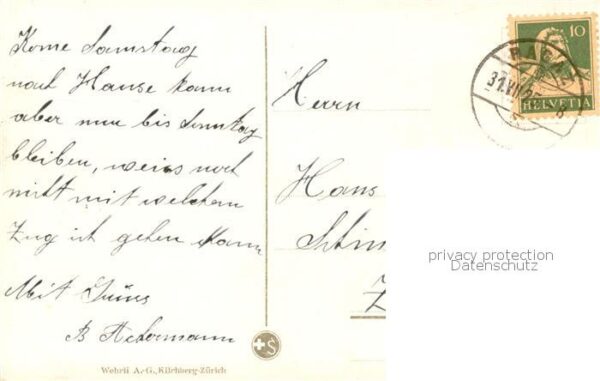 Kome Samstag
nach Hause kann
aber nur bis Sonntag
bleiben, weiss noch
nicht mit welchem
Zug ich gehen kann
Mit Grüss
B Ackermann
Herrn
Hans
10
HELVETIA
31.VII
privacy protection
Datenschutz
S
Wehrli A.-G., Kilchberg-Zürich